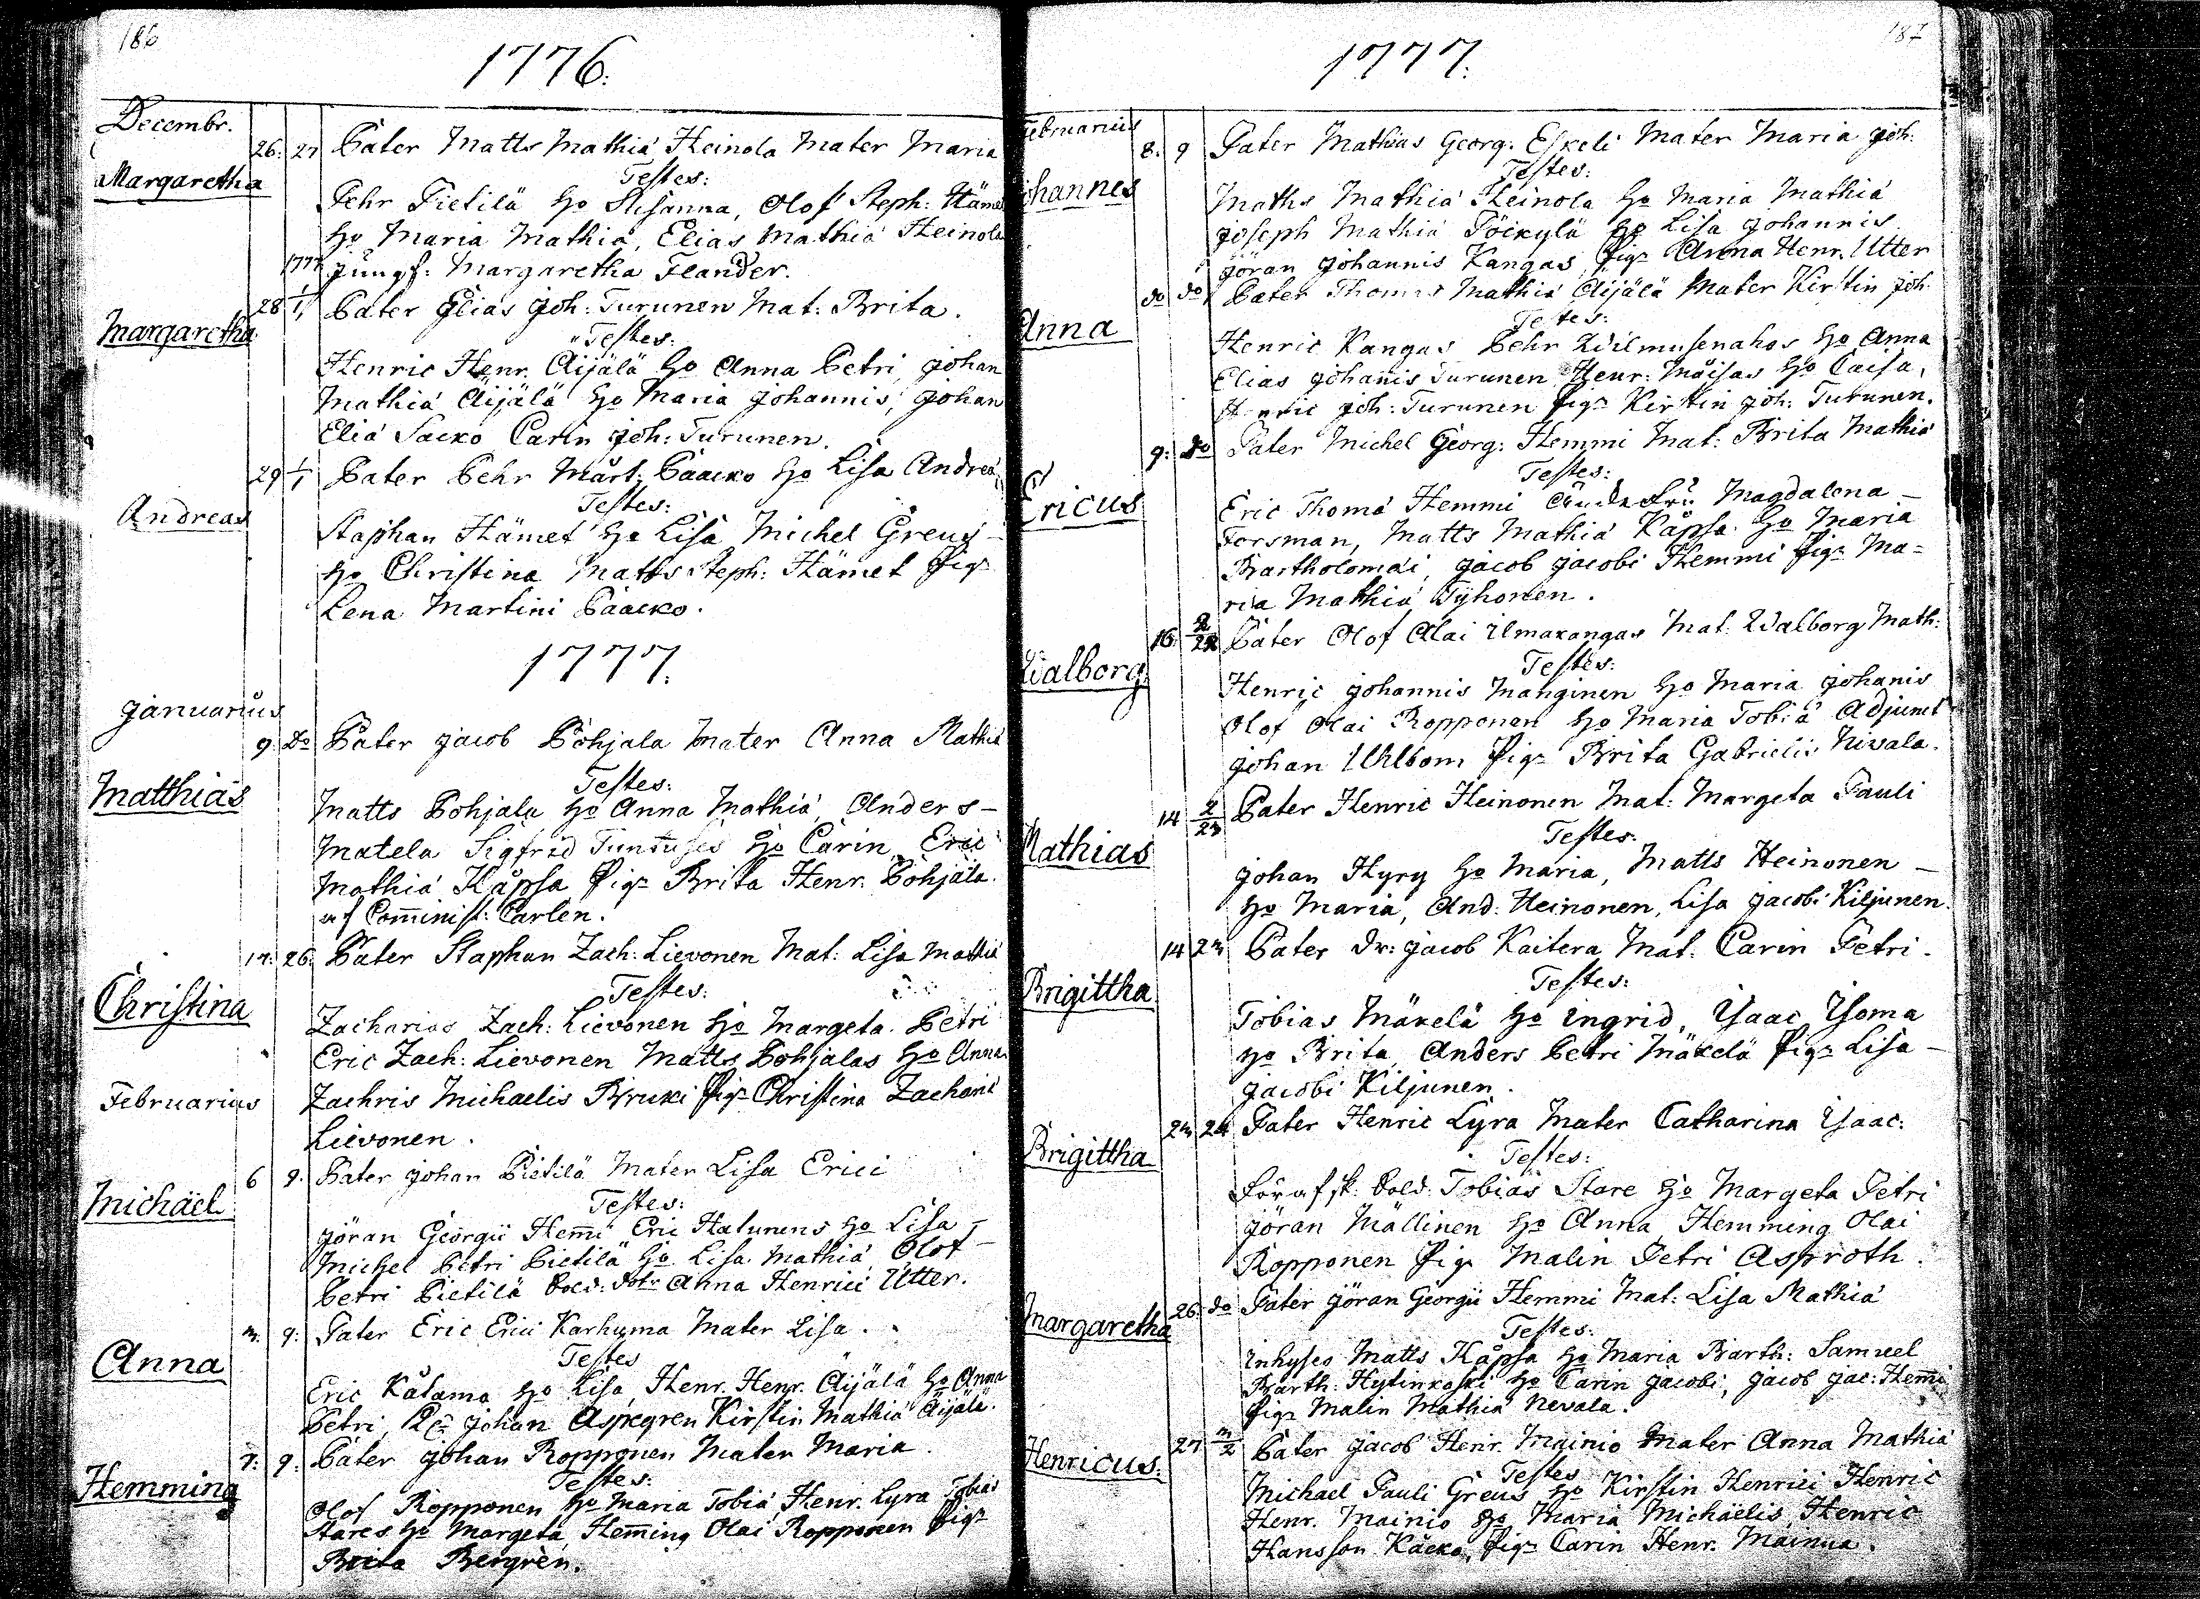 186
1776.
Decembr.
26. 27 Pater Matts Mathiá Heinola Mater Maria
Margaretha
Testes:
Pehr Pietilä ho Susanna, Olof Steph: Hämet
ho Maria Mathiá, Elias Mathiá Heinola
1777 jungf: Margaretha Flander.
28 1/1 Pater Elias joh: Turunen Mat: Brita.
Margaretha
Testes:
Henric Henr. Äijälä ho Anna Petri, johan
Mathiá Äijälä ho Maria johannis, johan
Eliá Sacko Carin joh: Turunen.
29 1/1 Pater Pehr Mårt: Pååcko ho Lisa Andreá
Andreas
Testes:
Staphan Hämet ho Lisa Michel Greus
ho Christina Matts Steph: Hämet pig
Lena Martini Pååcko.
1777.
januarius
9 do Pater jacob Pohjala Mater Anna Mathiá
Matthias
Testes:
Matts Pohjala ho Anna Mathiá, Anders
Matela Sigfrid ho Carin, Eric
Mathiá Kåpsa pig Brita Henr. Pohjala.
af Comminist: Carlén.
14: 26. Pater Staphan Zach: Lievonen Mat: Lisa Mathiá
Christina
Testes:
Zacharias Zach: Lievonen ho Margeta Petri
Eric Zach: Lievonen Matts Pohjalas ho Anna
Februarius
Zachris Michaelis Bruki pig Christina Zachariá
Lievonen.
6 9. Pater johan Pietilä Mater Lisa Erici
Michäel
Testes:
jöran Georgii Hemi Eric Halunens ho Lisa
Michel Petri Pietilä ho Lisa Mathiá, Olof
Petri Pietilä Sold: dotr Anna Henrici Utter.
3. 9: Pater Eric Erici Karhuma Mater Lisa.
Anna
Testes
Eric Kålama ho Lisa, Henr. Henr. Äijälä ho Anna
Petri, johan Aspegren Kirstin Mathiá Äijälä.
7: 9: Pater johan Ropponen Mater Maria.
Hemming
Testes:
Olof Ropponen ho Maria Tobiá, Henr. Lyra Tobias
Stares ho Margeta, Heming Olai Ropponen pig
Brita Bergrén.
187
1777.
Februarius
8. 9 Pater Mathias Georg: Eskeli Mater Maria joh:
Johannes
Testes:
Maths Mathiá Heinola ho Maria Mathiá
joseph Mathiá Töickylä ho Lisa johannis
jöran johannis Kangas, pig Anna Henr. Utter
do do Pater Thomas Mathiá Äijälä Mater Kirstin joh
Anna
Testes:
Henric Kangas Pehr Wilmusenahos ho Anna
Elias johanis Turunen Henr: Möisas ho Caisa,
Henric joh: Turunen pig Kirstin joh: Turunen.
9: do Pater Michel Georg: Hemmi Mat: Brita Mathiá
Ericus
Testes:
Eric Thomá Hemmi Magdalena
Forsman, Matts Mathiá Kåpsa ho Maria
Bartholomäi, jacob jacobi Hemmi pig Ma=
ria Mathiá Tyhonen.
16. 2/22 Pater Olof Olai Ilmakangas Mat: Walborg Math:
Walborg
Testes:
Henric johannis Manginen ho Maria johanis
Olof Olai Ropponen ho Maria Tobiá Adjunct
johan Uhlbom pig Brita Gabrielis Nivala.
14 2/23 Pater Henric Heinonen Mat: Margeta Pauli
Mathias
Testes.
johan Hyry ho Maria, Matts Heinonen
ho Maria, And: Heinonen, Lisa jacobi Kiljunen.
14 23 Pater Dr: jacob Kaitera Mat: Carin Petri.
Brigittha
Testes:
Tobias Mäkelä ho ingrid, Isaac Isoma
ho Brita, Anders Petri Mäkelä pig Lisa
jacobi Kiljunen.
23 24 Pater Henric Lyra Mater Catharina Isaac:
Brigittha
Testes:
Förafsk: Sold: Tobias Stare ho Margeta Petri
jöran Mällinen ho Anna, Hemming Olai
Ropponen pig Malin Petri Asproth.
26. do Pater jöran Georgii Hemmi Mat: Lisa Mathiá
Margaretha
Testes:
inhyses Matts Kåpsa ho Maria Barth: Samuel
Barth: Hytinkoski ho Carin jacobi, jacob jac: Hemi
pig Malin Mathiá Nevala.
27 3/2 Pater jacob Henr. Mainio Mater Anna Mathiá
Henricus:
Testes
Michael Pauli Greus ho Kirstin Henrici Henric
Henr. Mainio ho Maria Michäelis Henric
Hansson Käcko, pig Carin Henr. Mainua.